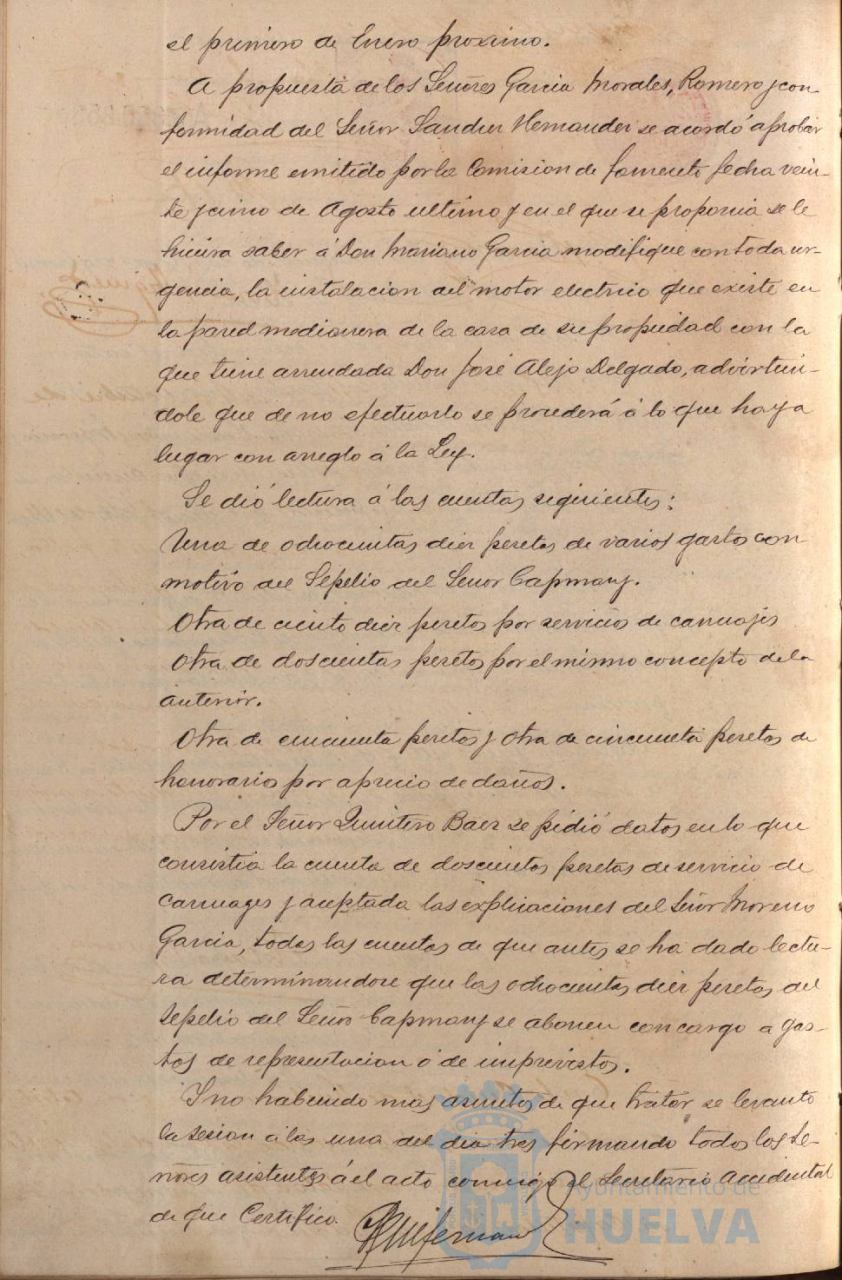 el primero de Enero proximo.
A propuesta de los Señores Garcia Morales, Romero y con-
formidad del Señor Sanchez Hernandez se acordó aprobar
el informe emitido por la Comision de fomento fecha vein-
te y cinco de Agosto ultimo y en el que se proponia se le
hiciera saber á Don Mariano Garcia modifique con toda ur-
gencia, la instalacion del motor electrico que existe en
la pared medianera de la casa de su propiedad con la
que tiene arrendada Don José Alejo Delgado, advirtien-
dole que de no efectuarlo se procederá á lo que haya
lugar con arreglo á la Ley.
Se dió lectura á las cuentas siguientes:
Una de ochocientas diez pesetas de varios gastos con
motivo del Sepelio del Señor Capmany.
Otra de ciento diez pesetas por servicios de carruajes
Otra de doscientas pesetas por el mismo concepto de la
anterior.
Otra de cincuenta pesetas y otra de cincuenta pesetas de
honorarios por aprecio de daños.
Por el Señor Quintero Baez se pidió datos en lo que
consistia la cuenta de doscientas pesetas de servicio de
carruages y aceptada las explicaciones del Señor Moreno
Garcia, todas las cuentas de que antes se ha dado lectu-
ra determinandose que las ochocientas diez pesetas del
sepelio del Señor Capmany se abonen con cargo a gas-
tos de representacion ó de imprevistos.
Y no habiendo mas asuntos de que tratar se levantó
la sesion á las una del dia tres firmando todos los Se-
ñores asistentes á el acto conmigo el Secretario Accidental
de que Certifico.
Ayuntamiento de
HUELVA